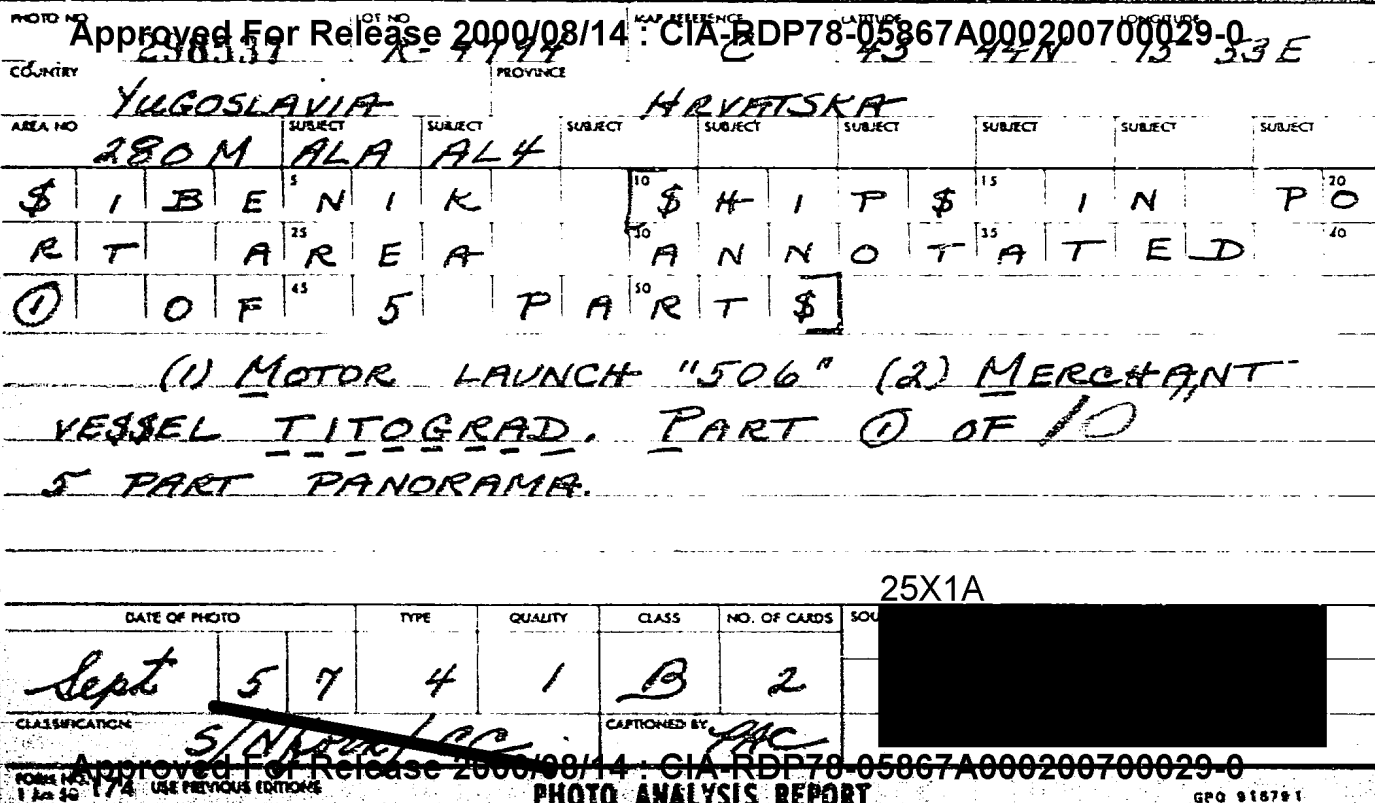 PHOTO NO LOT NO MAP REFERENCE LATITUDE LONGITUDE
Approved For Release 2000/08/14 : CIA-RDP78-05867A000200700029-0
C 43 44N 15 53E
COUNTRY PROVINCE
YUGOSLAVIA HRVATSKA
AREA NO SUBJECT SUBJECT SUBJECT SUBJECT SUBJECT SUBJECT SUBJECT SUBJECT
280M ALA AL4
$IBENIK [$HIP$ IN PO
5 10 15 20
RT AREA ANNOTATED
25 30 35 40
① OF 5 PART$]
45 50
(1) MOTOR LAUNCH "506" (2) MERCHANT
VE$$EL TITOGRAD. PART ① OF 10
5 PART PANORAMA.
25X1A
DATE OF PHOTO TYPE QUALITY CLASS NO. OF CARDS SOU
Sept 5 7 4 1 B 2
CLASSIFICATION CAPTIONED BY
PAC
Approved For Release 2000/08/14 : CIA-RDP78-05867A000200700029-0
FORM NO. 174 USE PREVIOUS EDITIONS
PHOTO ANALYSIS REPORT
GPO 916791